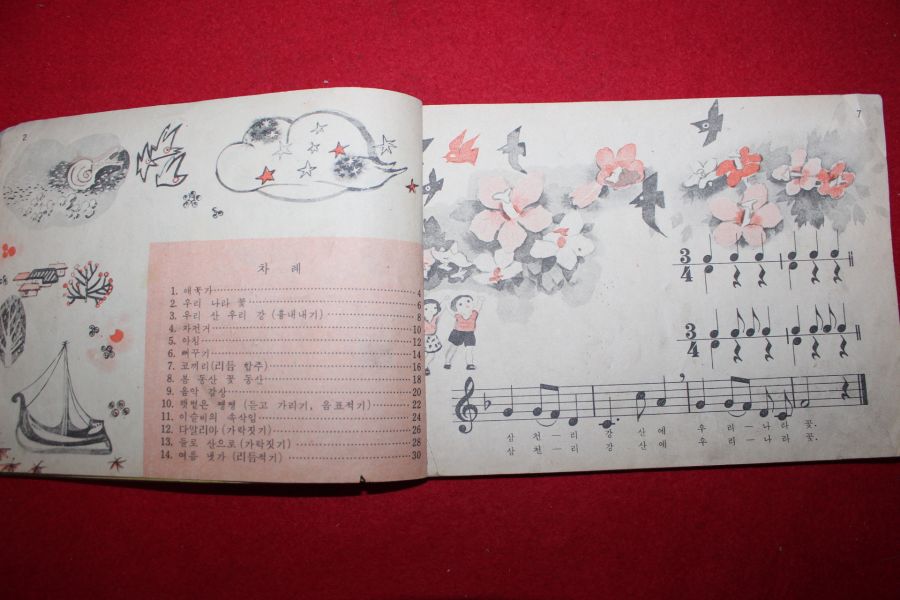 2
차 례
1. 애국가 4
2. 우리 나라 꽃 6
3. 우리 산 우리 강 (흉내내기) 8
4. 차전거 10
5. 아침 12
6. 뻐꾸기 14
7. 코끼리 (리듬 합주) 16
8. 봄 동산 꽃 동산 18
9. 음악 감상 20
10. 햇볕은 쨍쨍 (듣고 가리기, 음표적기) 22
11. 이슬비의 속삭임 24
12. 다알리아 (가락짓기) 26
13. 들로 산으로 (가락짓기) 28
14. 여름 냇가 (리듬적기) 30
7
3/4
3/4
삼 천 — 리 강 산 에 우 리 — 나 라 꽃.
삼 천 — 리 강 산 에 우 리 — 나 라 꽃.